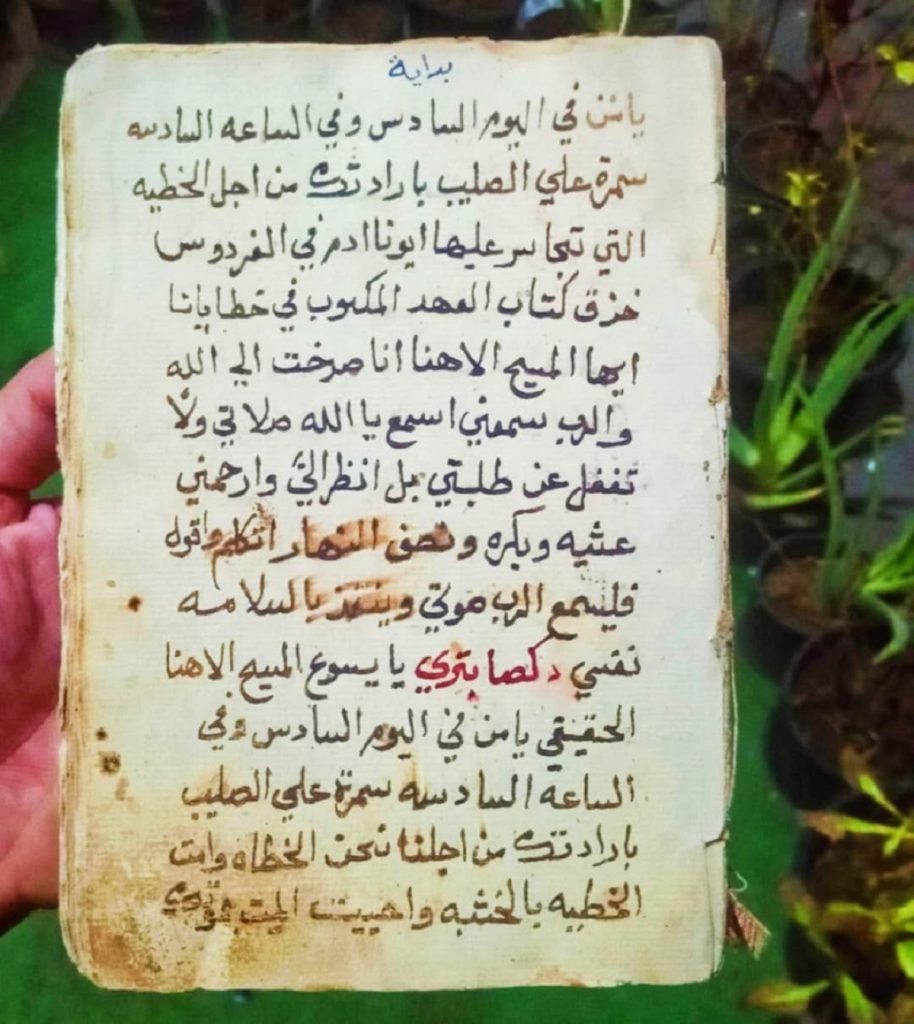 بداية
يامن في اليوم السادس وفي الساعه السادسه
سمرة علي الصليب بارادتك من اجل الخطيه
التي تجاسر عليها ابونا ادم في الفردوس
خزق كتاب العهد المكتوب في خطايانا
ايها المسيح الاهنا انا صرخت الي الله
والرب سمعني اسمع يا الله صلاتي ولا
تغفل عن طلبتي بل انظر اليَّ وارحمني
عشيه وبكره ونصف النهار اتكلم واقول
فليسمع الرب صوتي وينقذ بالسلامه
نفسي دكصابتري يا يسوع المسيح الاهنا
الحقيقي يامن في اليوم السادس وفي
الساعه السادسه سمرة علي الصليب
بارادتك من اجلنا نحن الخطاه وامت
الخطيه بالخشبه واحييت الميت بموتك